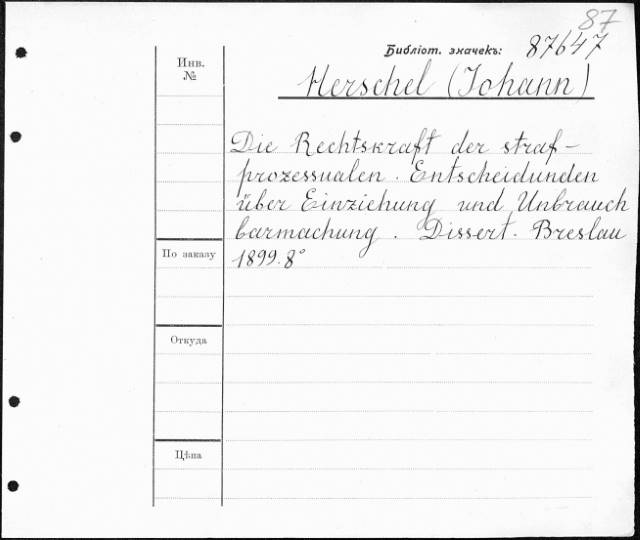 87
Библіот. значекъ: 87647
Инв.
№
Herschel (Johann)
Die Rechtskraft der straf-
prozessualen. Entscheidunden
über Einziehung und Unbrauch
barmachung. Dissert. Breslau
По заказу
1899. 8°
Откуда
Цѣна